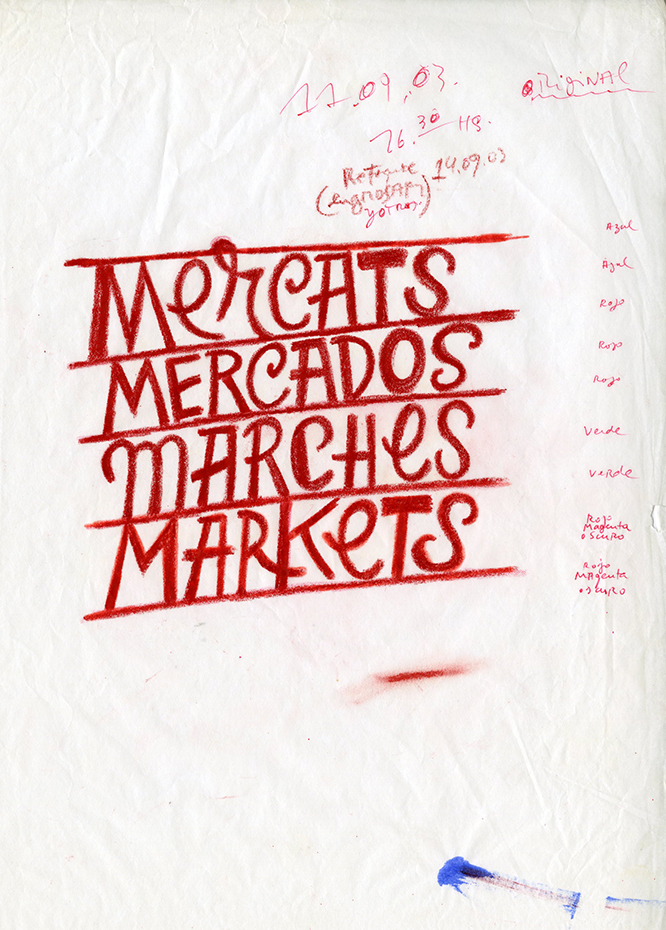 11.09.03.
ORIGINAL
16.30 HS.
Retoque 14.09.03
(engrosar)
y otros.
Mercats
MERCADOS
MARCHES
MARKETS
Azul
Azul
Rojo
Rojo
Rojo
Verde
Verde
Rojo
Magenta
OSCURO
Rojo
Magenta
OSCURO